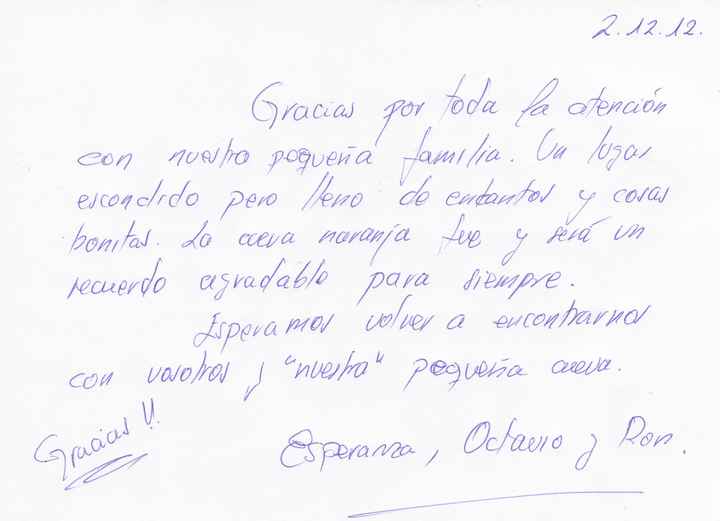 2.12.12.
Gracias por toda la atención
con nuestra pequeña familia. Un lugar
escondido pero lleno de encantos y cosas
bonitas. La cueva naranja fue y será un
recuerdo agradable para siempre.
Esperamos volver a encontrarnos
con vosotros y "nuestra" pequeña cueva.
Gracias!!
Esperanza, Octavio y Ron.